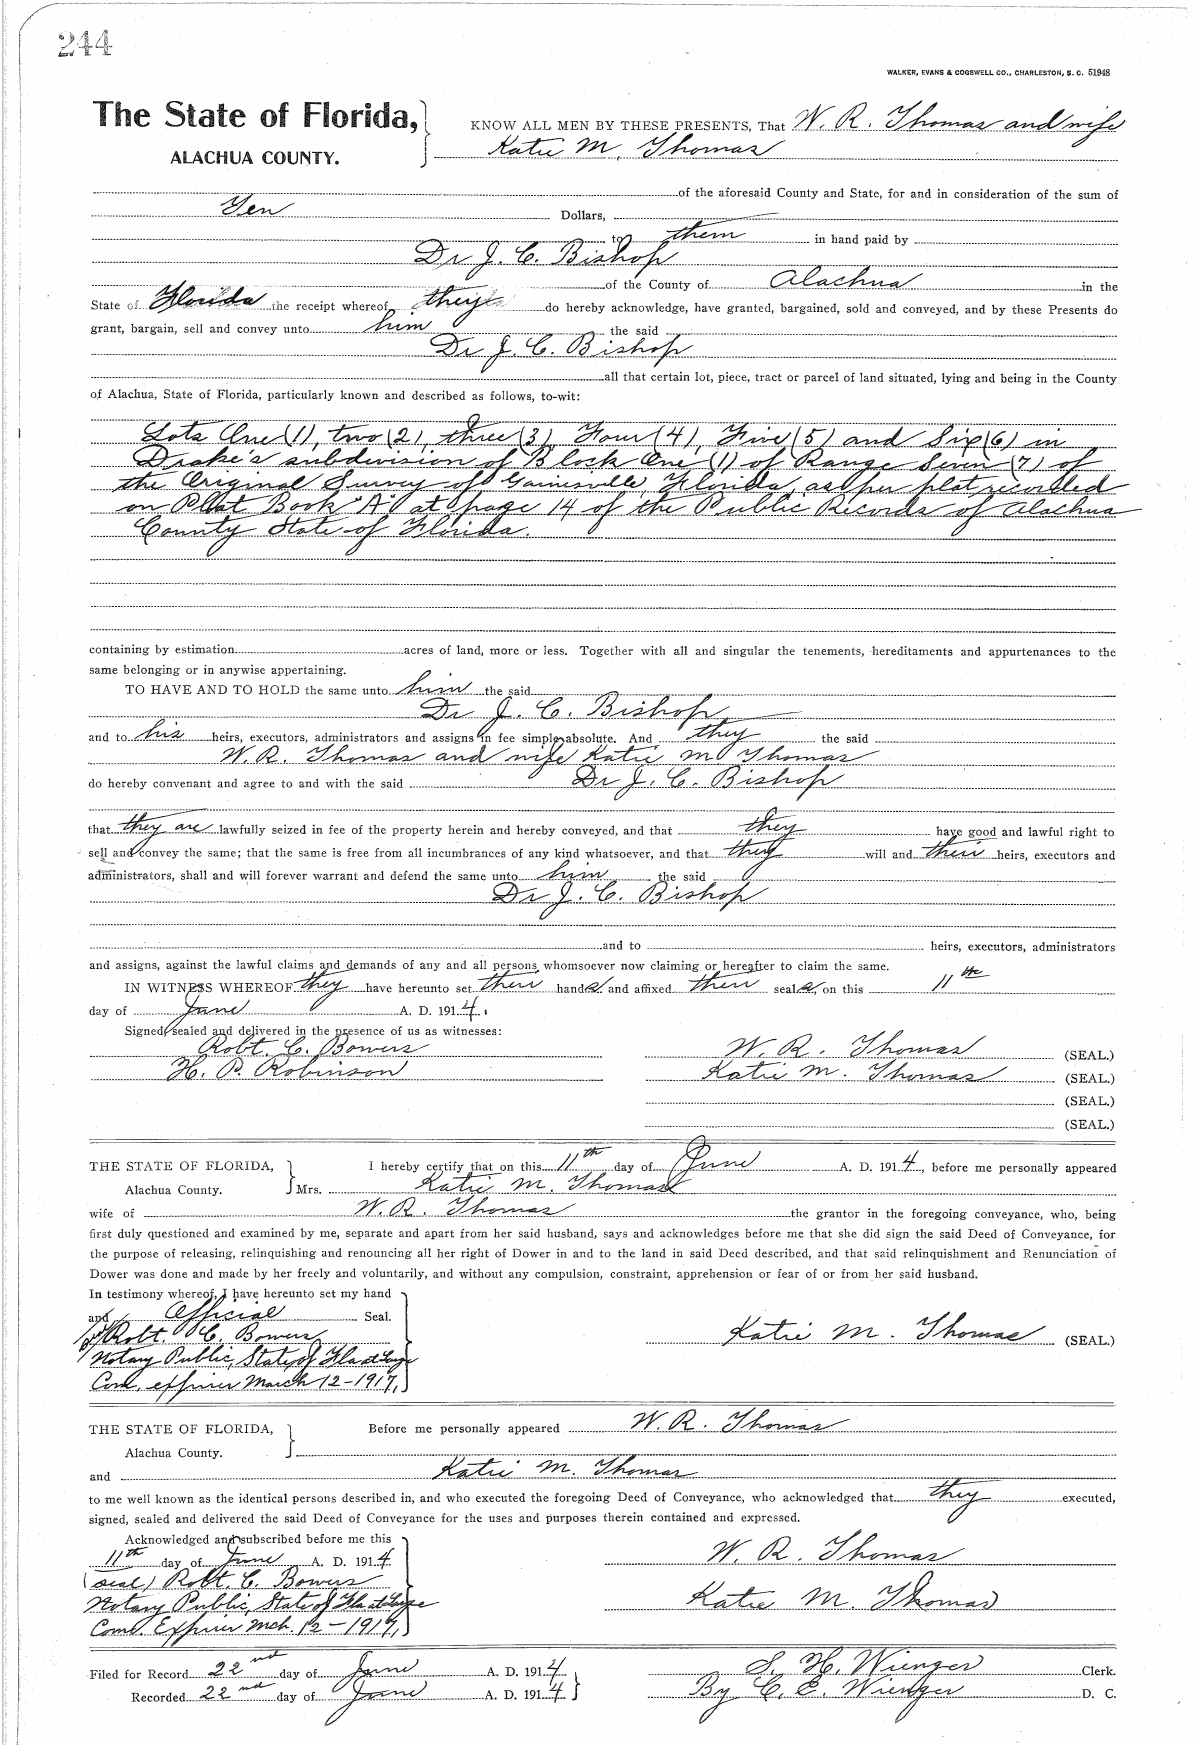 244
WALKER, EVANS & COGSWELL CO., CHARLESTON, S. C. 51948
The State of Florida,
ALACHUA COUNTY.
KNOW ALL MEN BY THESE PRESENTS, That W. R. Thomas and wife
Katie M. Thomas
of the aforesaid County and State, for and in consideration of the sum of
Ten Dollars,
to them in hand paid by
Dr J. C. Bishop
of the County of Alachua in the
State of Florida the receipt whereof they do hereby acknowledge, have granted, bargained, sold and conveyed, and by these Presents do
grant, bargain, sell and convey unto him the said
Dr J. C. Bishop
all that certain lot, piece, tract or parcel of land situated, lying and being in the County
of Alachua, State of Florida, particularly known and described as follows, to-wit:
Lots One (1), two (2), three (3), Four (4), Five (5) and Six (6) in
Drake's subdivision of Block One (1) of Range Seven (7) of
the Original Survey of Gainesville, Florida, as per plat recorded
on Plat Book "A" at page 14 of the Public Records of Alachua
County State of Florida.
containing by estimation acres of land, more or less. Together with all and singular the tenements, hereditaments and appurtenances to the
same belonging or in anywise appertaining.
TO HAVE AND TO HOLD the same unto him the said
Dr J. C. Bishop
and to his heirs, executors, administrators and assigns in fee simple absolute. And they the said
W. R. Thomas and wife Katie M Thomas
do hereby convenant and agree to and with the said Dr J. C. Bishop
that they are lawfully seized in fee of the property herein and hereby conveyed, and that they have good and lawful right to
sell and convey the same; that the same is free from all incumbrances of any kind whatsoever, and that they will and their heirs, executors and
administrators, shall and will forever warrant and defend the same unto him the said
Dr J. C. Bishop
and to heirs, executors, administrators
and assigns, against the lawful claims and demands of any and all persons whomsoever now claiming or hereafter to claim the same.
IN WITNESS WHEREOF they have hereunto set their hands and affixed their seals, on this 11th
day of June A. D. 1914.
Signed, sealed and delivered in the presence of us as witnesses:
Robt. C. Bowers
H. P. Robinson
W. R. Thomas (SEAL.)
Katie M. Thomas (SEAL.)
(SEAL.)
(SEAL.)
THE STATE OF FLORIDA,
Alachua County.
I hereby certify that on this 11th day of June A. D. 1914, before me personally appeared
Mrs. Katie M. Thomas
wife of W. R. Thomas the grantor in the foregoing conveyance, who, being
first duly questioned and examined by me, separate and apart from her said husband, says and acknowledges before me that she did sign the said Deed of Conveyance, for
the purpose of releasing, relinquishing and renouncing all her right of Dower in and to the land in said Deed described, and that said relinquishment and Renunciation of
Dower was done and made by her freely and voluntarily, and without any compulsion, constraint, apprehension or fear of or from her said husband.
In testimony whereof, I have hereunto set my hand
and Official Seal.
Robt. C. Bowers
Notary Public, State of Fla at Large
Com. expires March 12-1917,
Katie M. Thomas (SEAL.)
THE STATE OF FLORIDA,
Alachua County.
Before me personally appeared W. R. Thomas
and Katie M. Thomas
to me well known as the identical persons described in, and who executed the foregoing Deed of Conveyance, who acknowledged that they executed,
signed, sealed and delivered the said Deed of Conveyance for the uses and purposes therein contained and expressed.
Acknowledged and subscribed before me this
11th day of June A. D. 1914
(seal) Robt. C. Bowers
Notary Public, State of Fla at Large
Com. Expires Mch. 12-1917,
W. R. Thomas
Katie M. Thomas
Filed for Record 22nd day of June A. D. 1914
Recorded 22nd day of June A. D. 1914
S. H. Wienges Clerk.
By C. E. Wienges D. C.